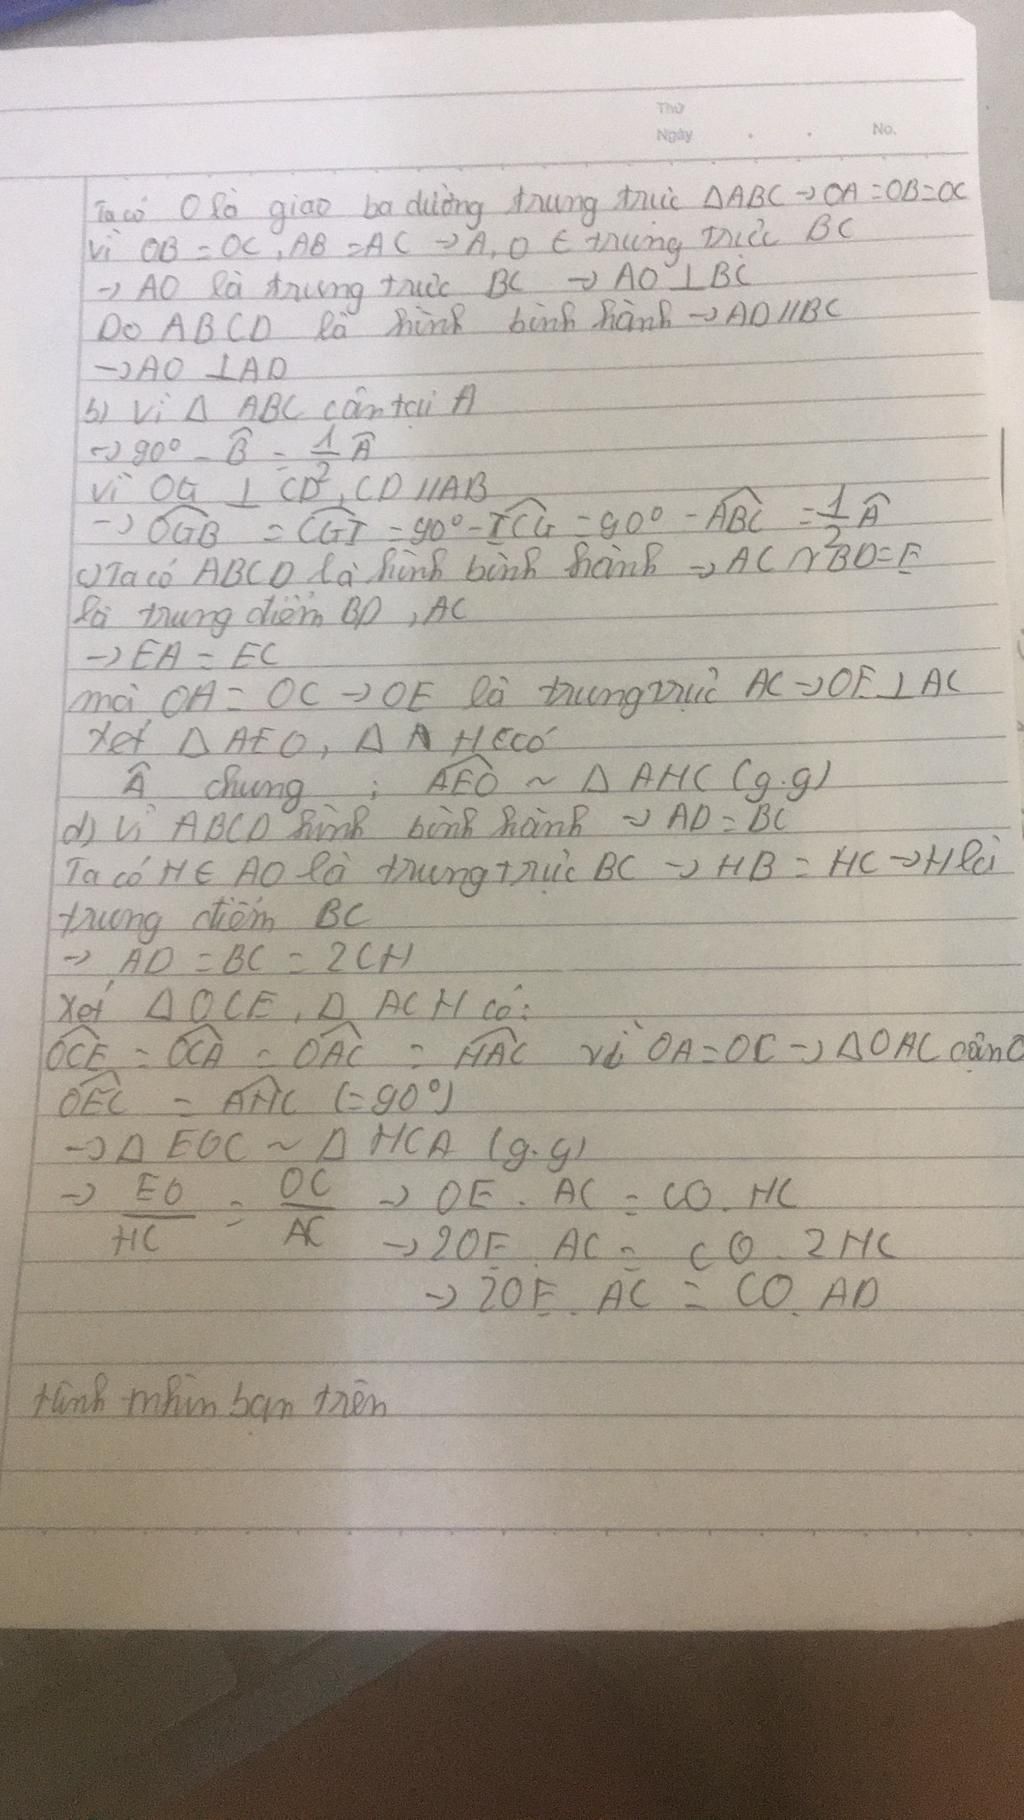 Thứ
Ngày . . No.
Ta có O là giao ba đường trung trực ΔABC → OA = OB = OC
Vì OB = OC, AB = AC → A, O ∈ trung trực BC
→ AO là trung trực BC → AO ⊥ BC
Do ABCD là hình bình hành → AD // BC
→ AO ⊥ AD
b) Vì Δ ABC cân tại A
→ 90° - B̂ = 1/2 Â
Vì OG ⊥ CD, CD // AB
→ OGB = CGI = 90° - ICG = 90° - ABC = 1/2 Â
c) Ta có ABCD là hình bình hành → AC ∩ BD = E
là trung điểm BD, AC
→ EA = EC
mà OA = OC → OE là trung trực AC → OE ⊥ AC
Xét Δ AEO, Δ AHC có
Â chung ; AEO ~ Δ AHC (g.g)
d) Vì ABCD hình bình hành → AD = BC
Ta có H ∈ AO là trung trực BC → HB = HC → H là
trung điểm BC
→ AD = BC = 2CH
Xét Δ OCE, Δ ACH có:
OCE = OCA = OAC = HAC vì OA = OC → ΔOAC cân O
OEC = AHC (= 90°)
→ Δ EOC ~ Δ HCA (g.g)
→ EO/HC = OC/AC → OE . AC = CO . HC
→ 2OE . AC = CO . 2HC
→ 2OE . AC = CO . AD
Hình nhìn bạn trên